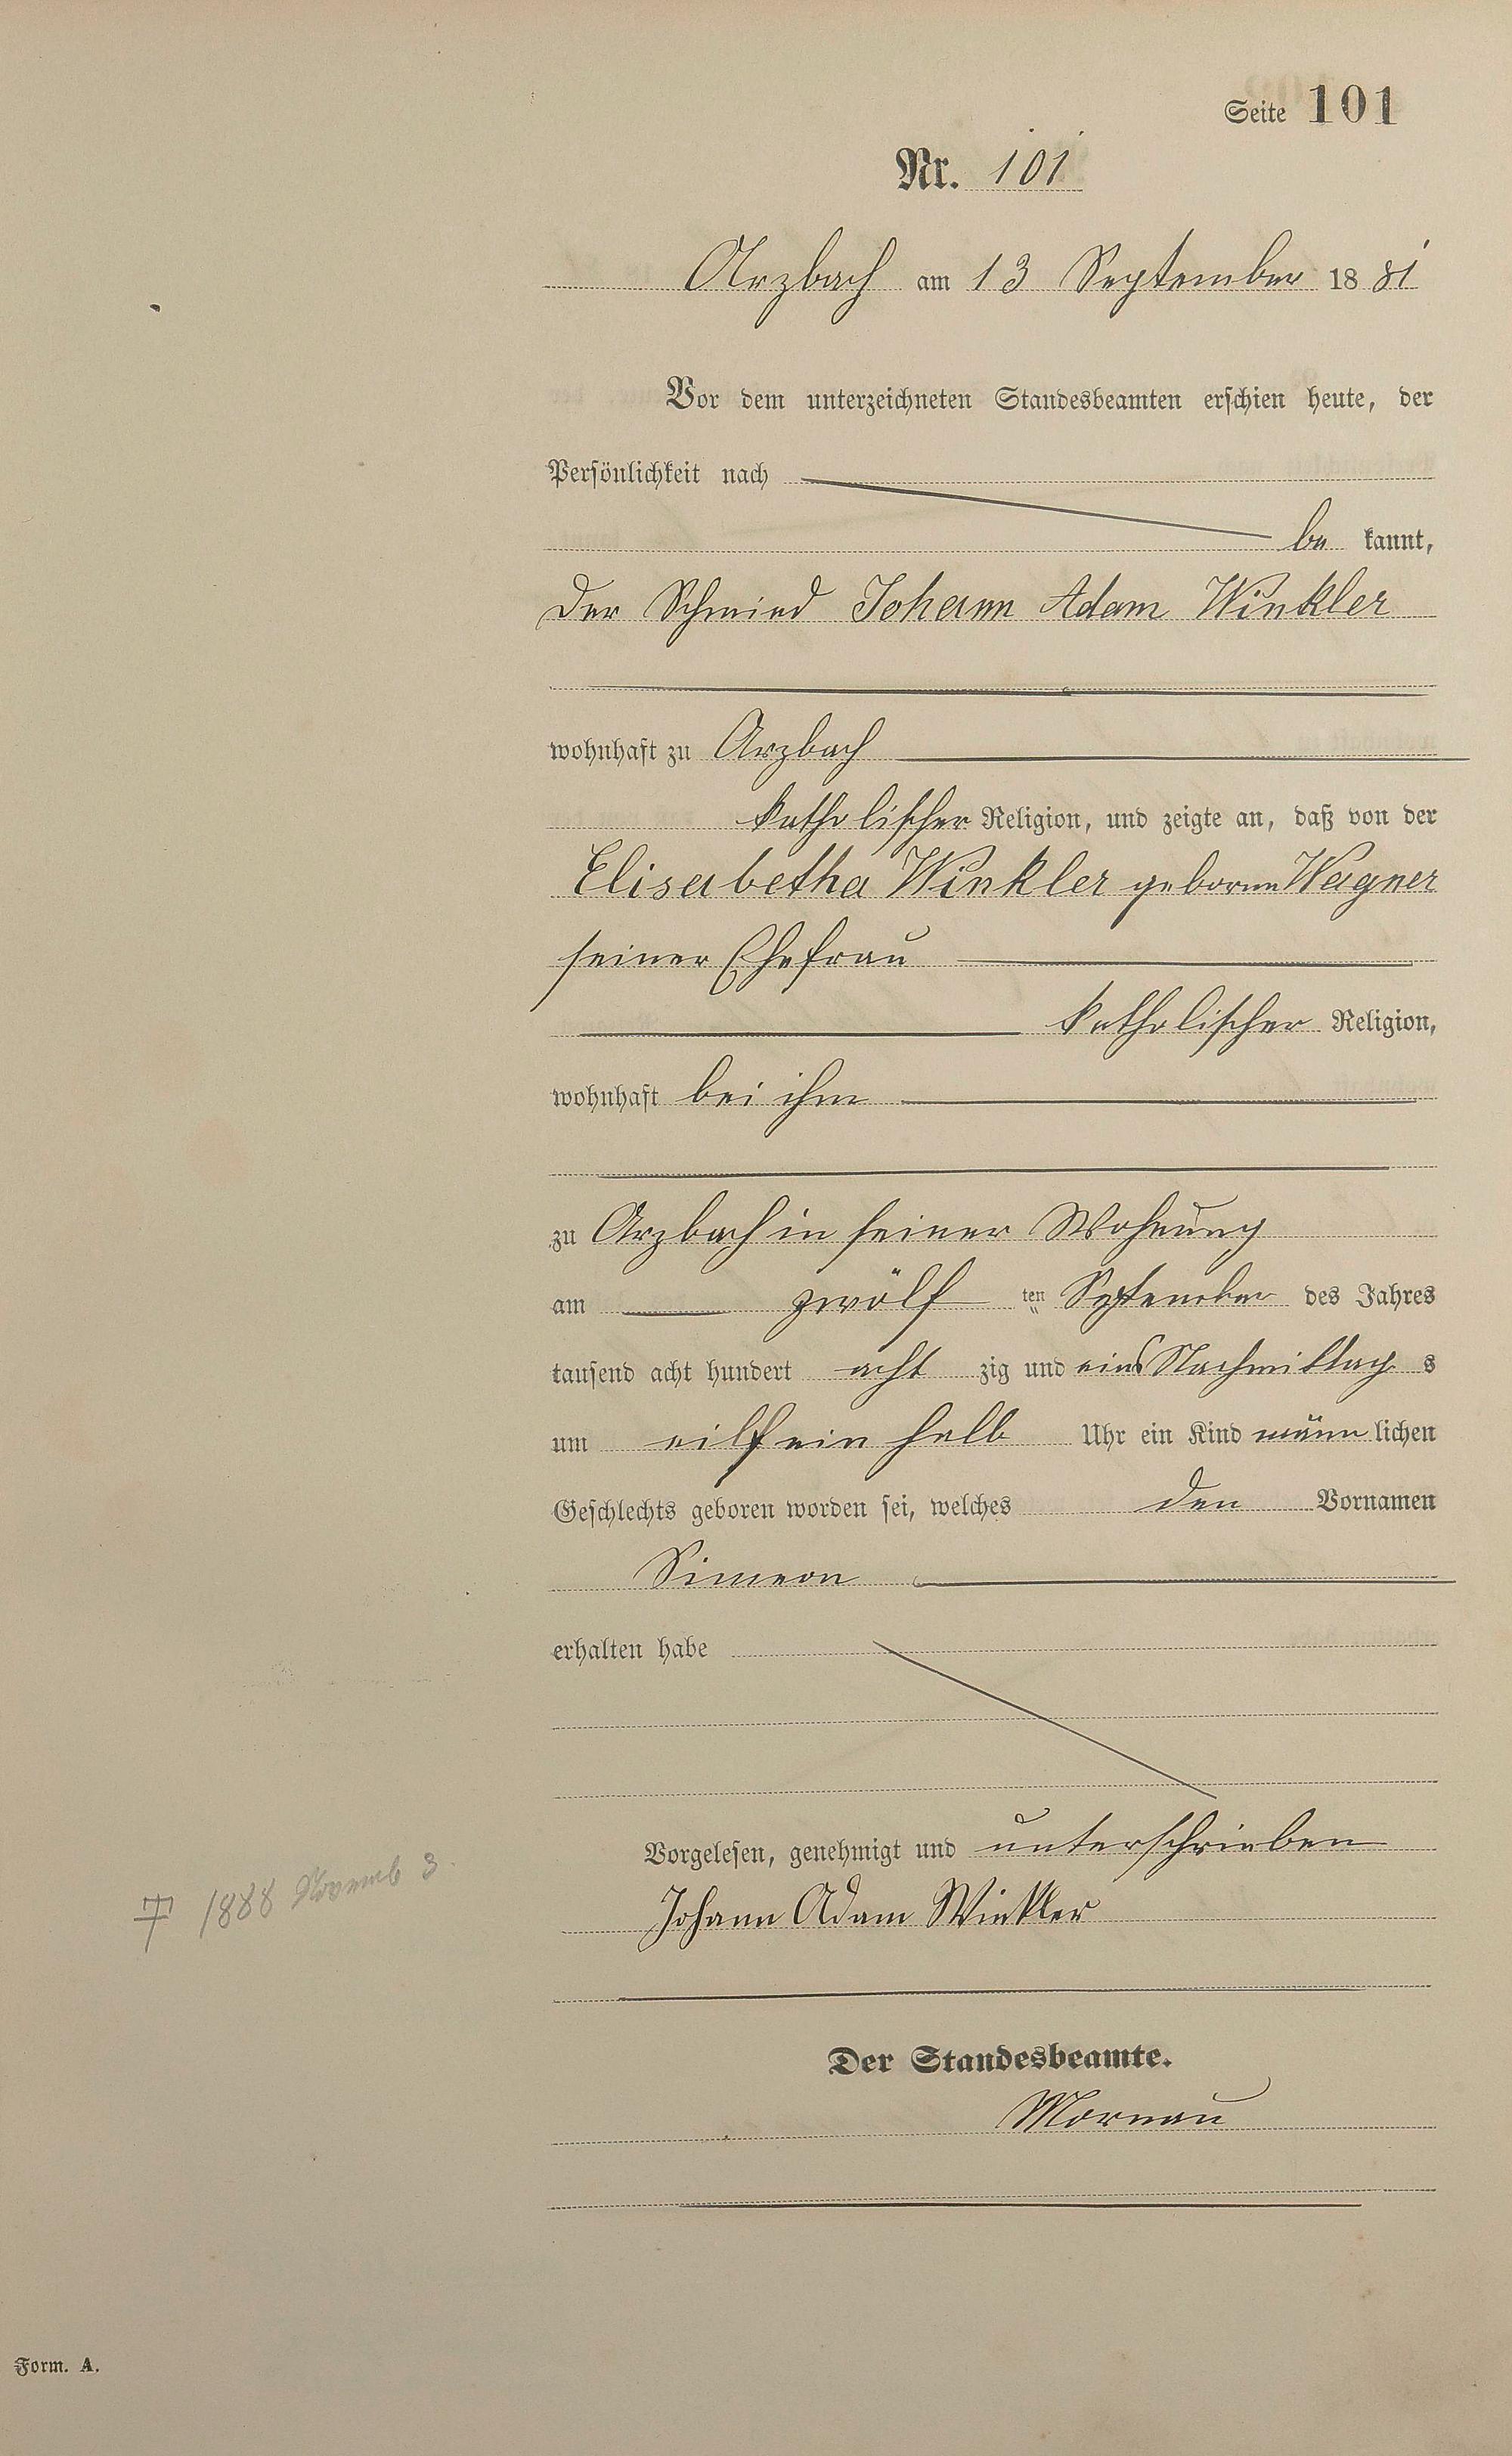 Seite 101
Nr. 101
Arzbach am 13 September 1881
Vor dem unterzeichneten Standesbeamten erschien heute, der
Persönlichkeit nach
be kannt,
der Schmied Johann Adam Winkler
wohnhaft zu Arzbach
katholischer Religion, und zeigte an, daß von der
Elisabetha Winkler geborne Wagner
seiner Ehefrau
katholischer Religion,
wohnhaft bei ihm
zu Arzbach in seiner Wohnung
am zwölf ten September des Jahres
tausend acht hundert acht zig und eins Nachmittag s
um eilf ein halb Uhr ein Kind männ lichen
Geschlechts geboren worden sei, welches den Vornamen
Simeon
erhalten habe
Vorgelesen, genehmigt und unterschrieben
Johann Adam Winkler
† 1888 Novemb 3.
Der Standesbeamte.
Mornau
Form. A.